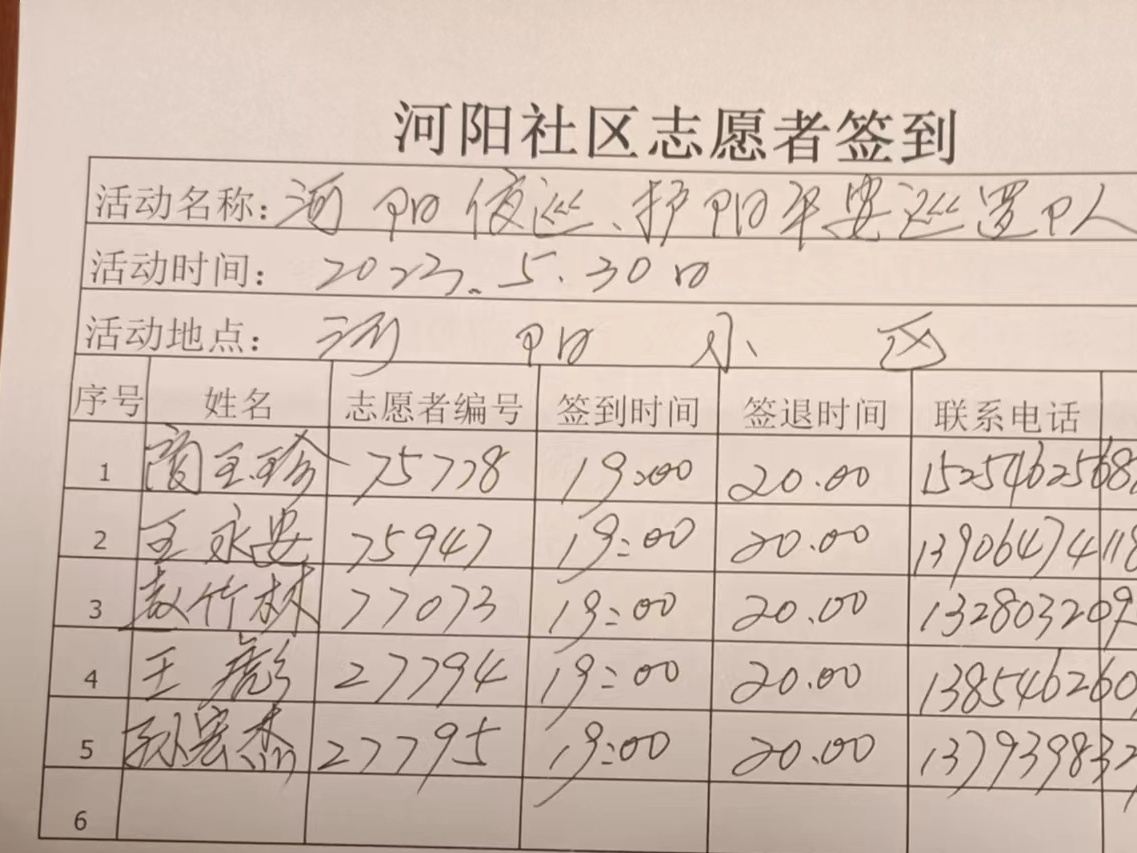 河阳社区志愿者签到
活动名称: 河阳夜巡、护阳平安巡逻
活动时间: 2023.5.30日
活动地点: 河阳小区
序号 姓名 志愿者编号 签到时间 签退时间 联系电话
1 玉珍 75778 19:00 20.00 1525462568
2 王永安 75947 19:00 20.00 13906474118
3 赵竹林 77073 19:00 20.00 132803209
4 王彪 27794 19:00 20.00 138546260
5 孙宏杰 27795 19:00 20.00 137939832
6